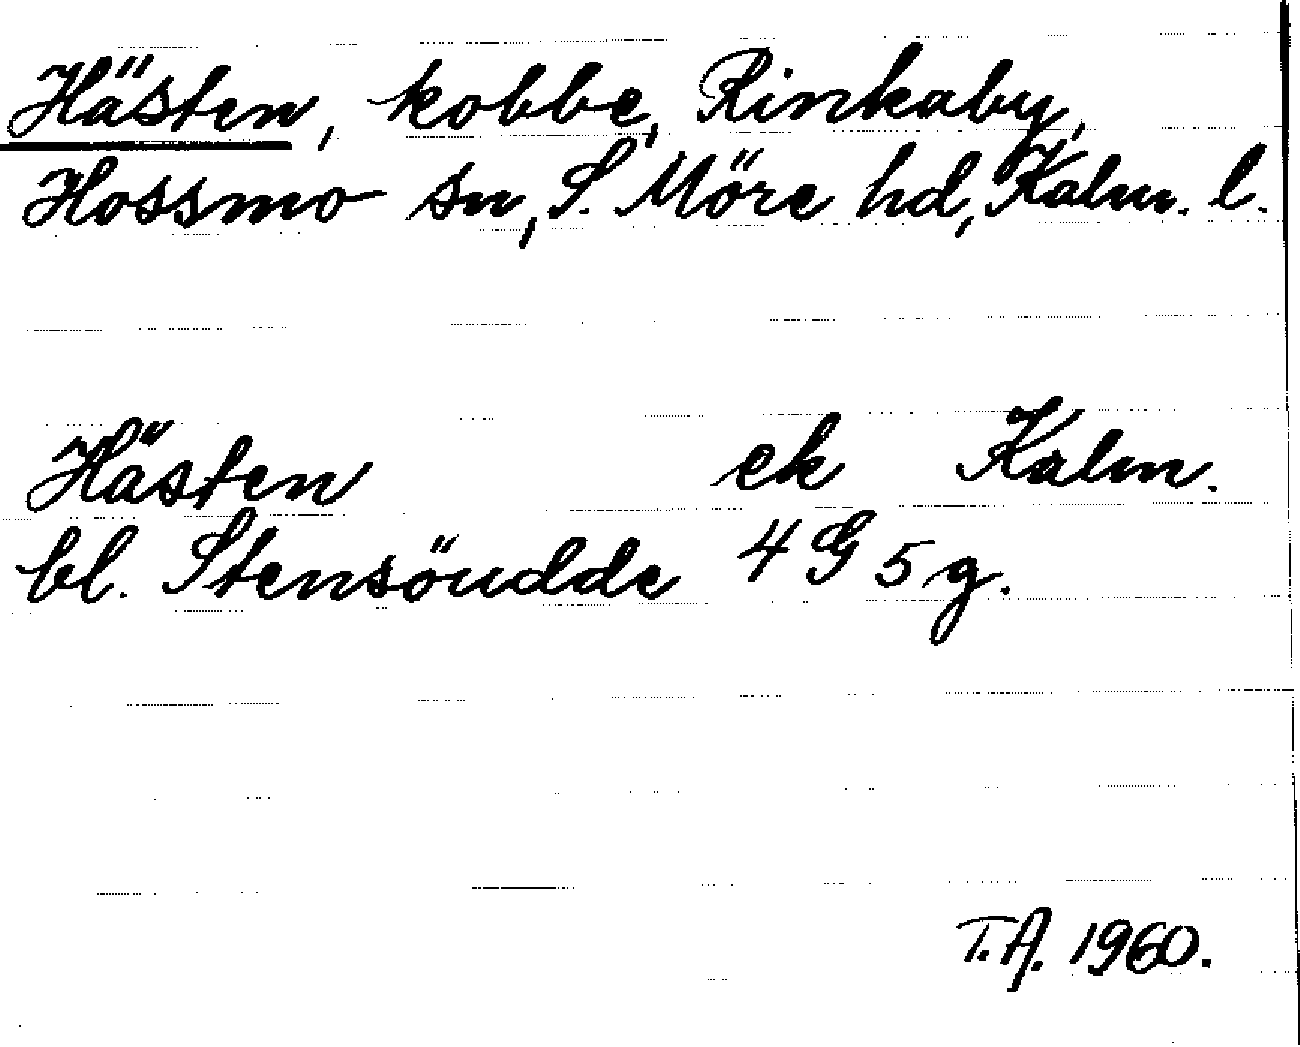 Hästen, kobbe, Rinkaby,
Hossmo sn, S. Möre hd, Kalm. l.
Hästen ek Kalm.
bl. Stensöudde 4 G 5 g.
T.A. 1960.